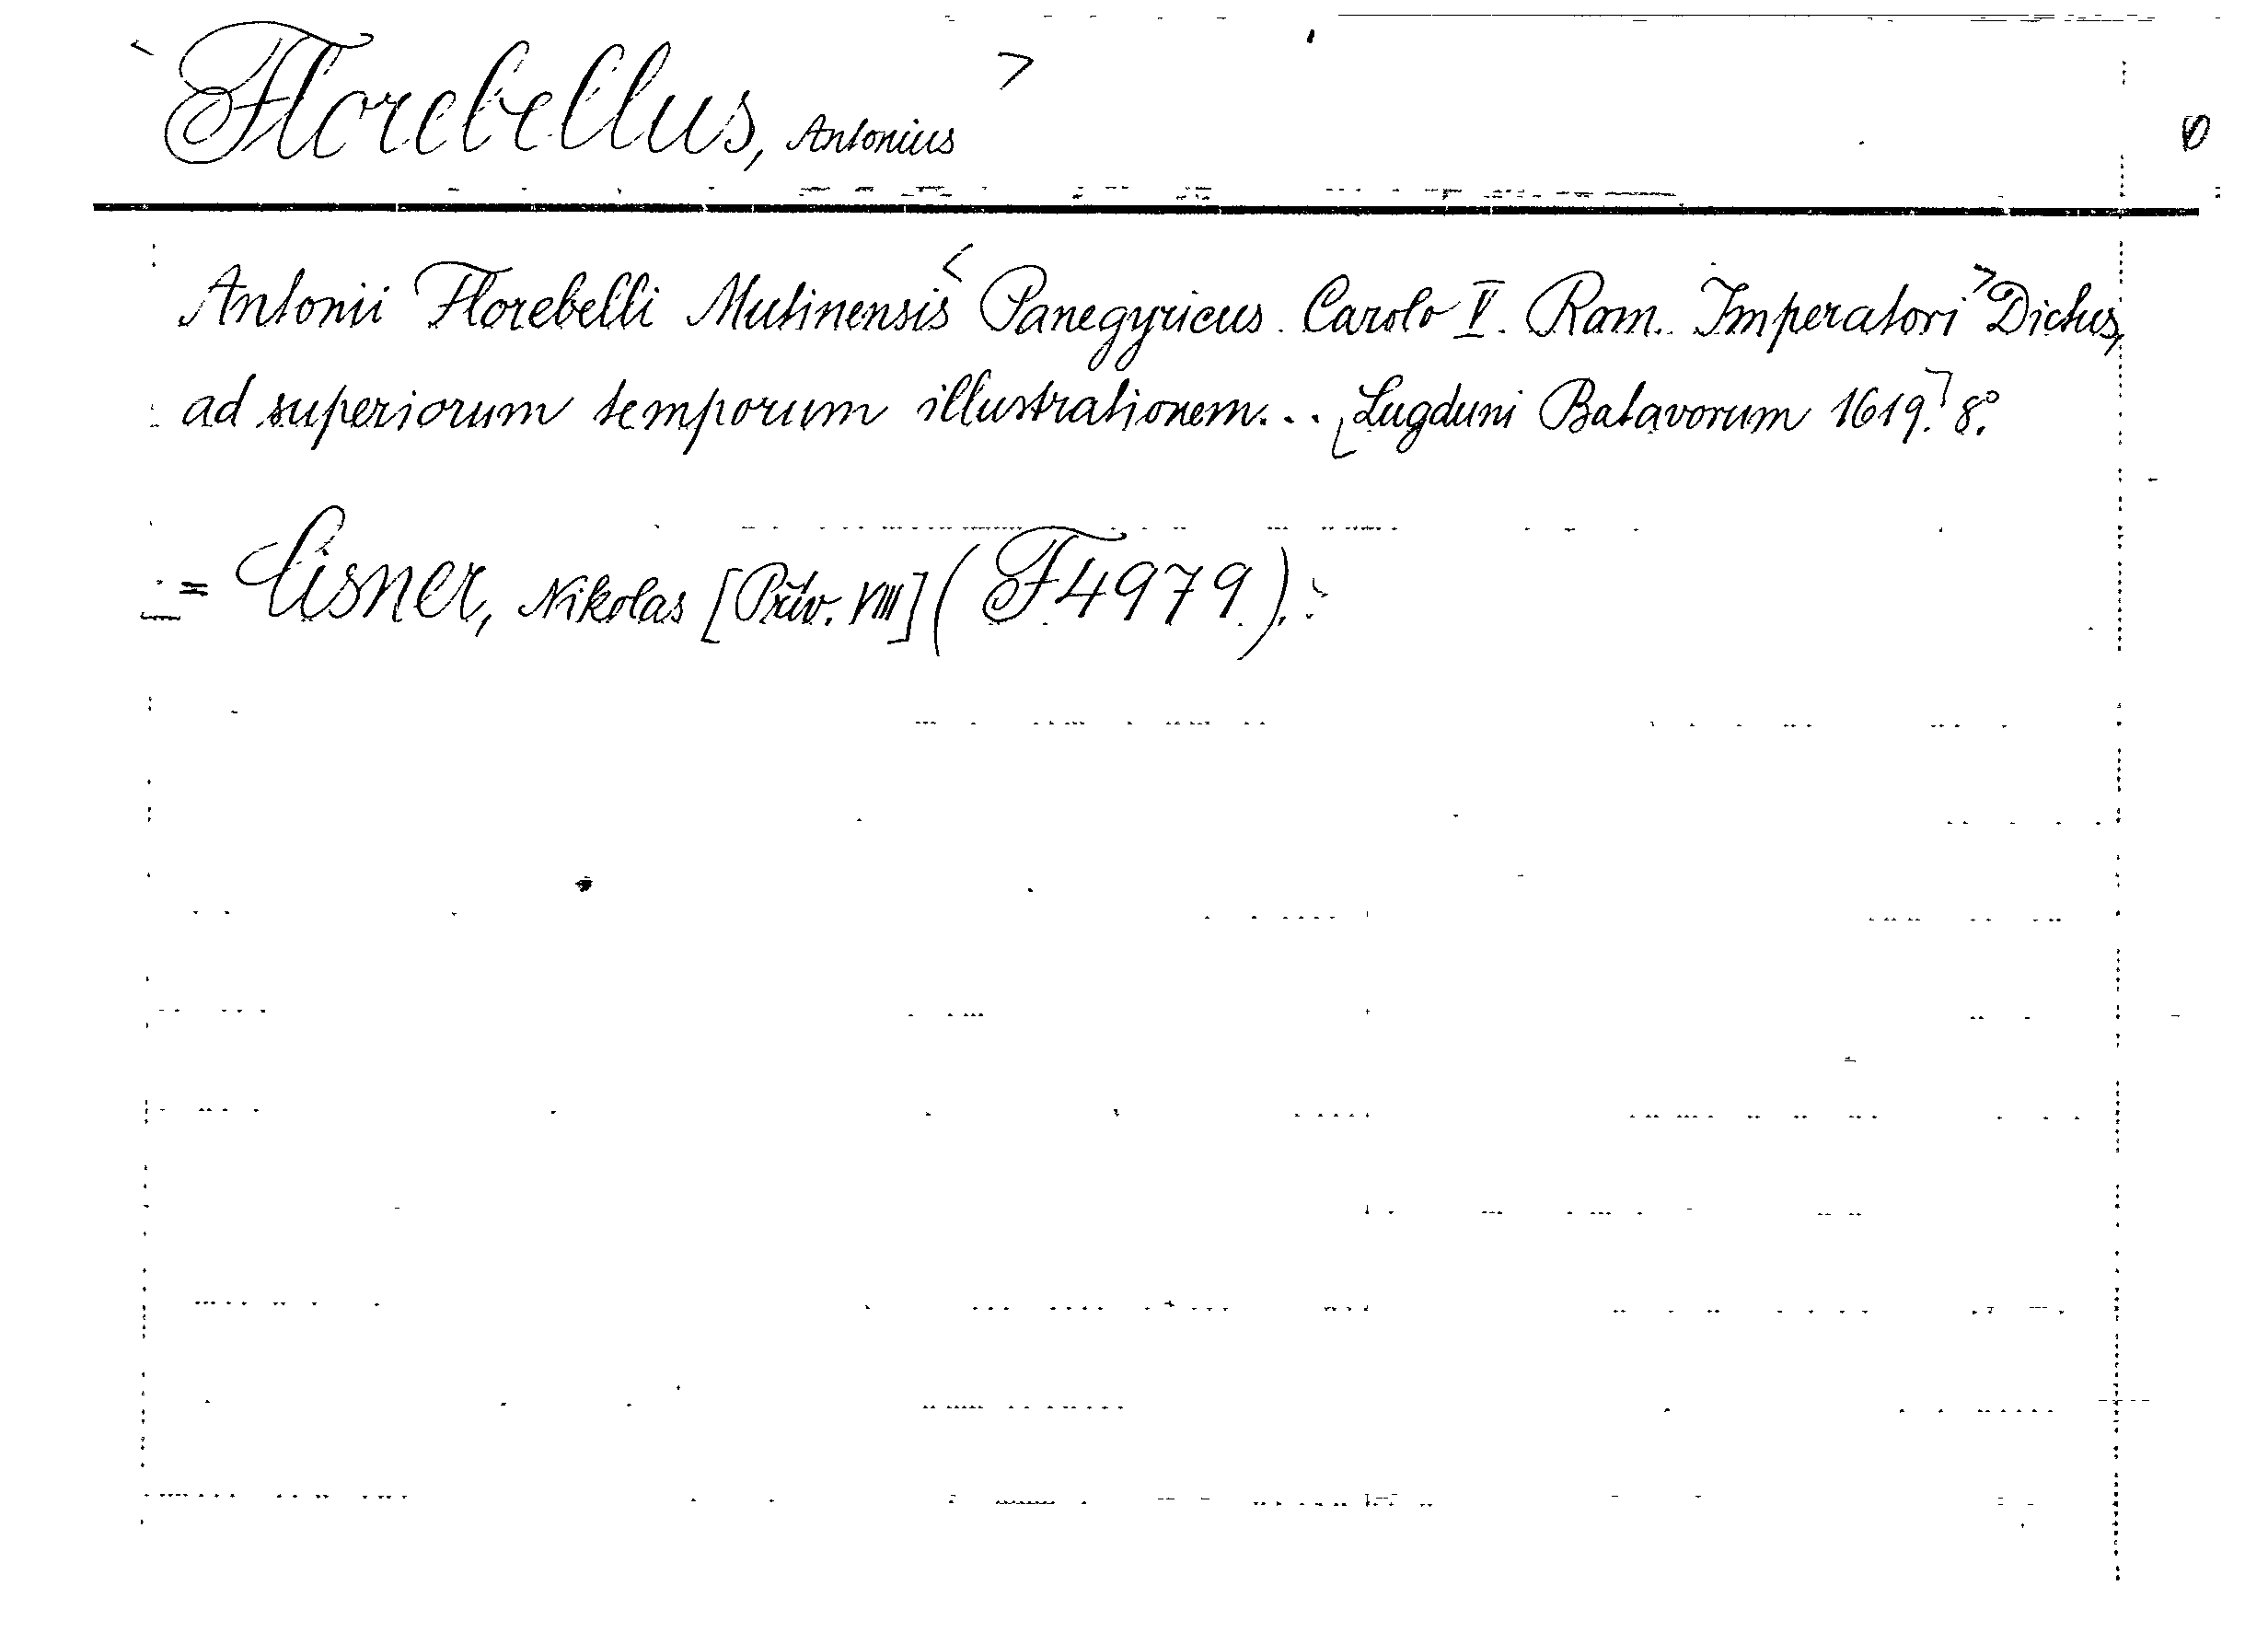 <Florebellus, Antonius>
Antonii Florebelli Mutinensis <Panegyricus Carolo V. Rom. Imperatori> Dictus,
ad superiorum temporum illustrationem... [Lugduni Batavorum 1619.] 8.°
= Cisner, Nikolas [Přív. VIII] (F.4979.).